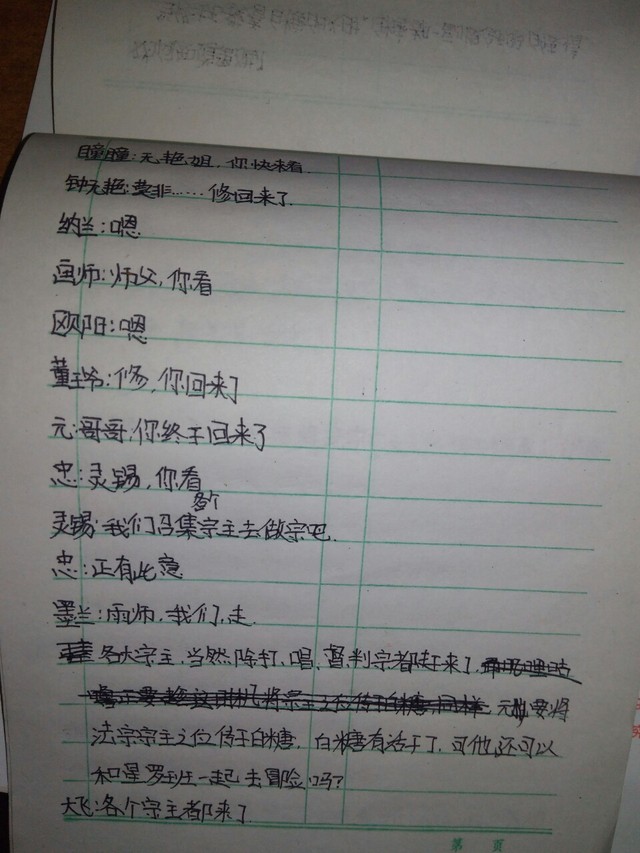 瞳瞳:无艳姐,你快来看
钟无艳:莫非……修回来了
纳兰:嗯
画师:师父,你看
欧阳:嗯
董王爷:修,你回来了
元:哥哥,你终于回来了
忠:灵锡,你看
各个
灵锡:我们召集宗主去做宗吧
忠:正有此意
墨兰:雨师,我们走
各大宗主,当然除打、唱、督判宗都赶来了,
元帅要将
法宗宗主之位传于白糖,白糖有活干了,可他还可以
和星罗班一起去冒险吗?
大飞:各个宗主都来了
第 页